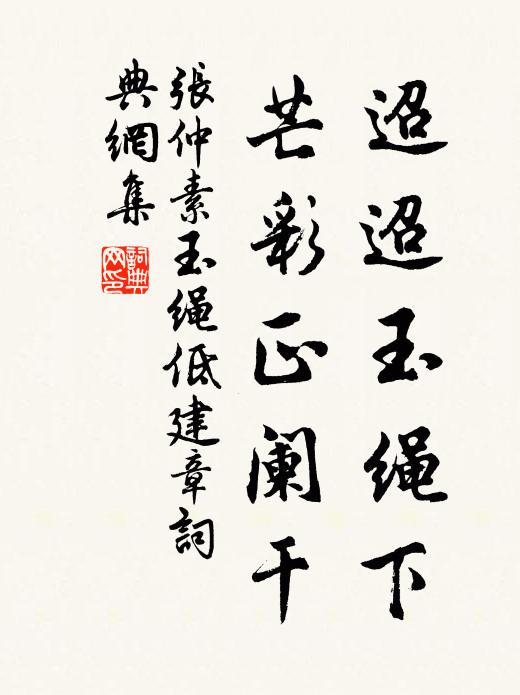 迢迢玉绳下
芒彩正阑干
張仲素玉绳低建章詞
典網集
詞典
网印